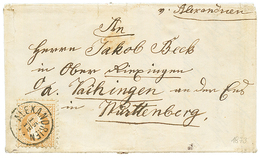 v. Alexandrien
An
Herrn Jakob Beck
in Ober Riexingen
a/d. Vaihingen an der Enz
in Württemberg.
ALEXANDRIEN